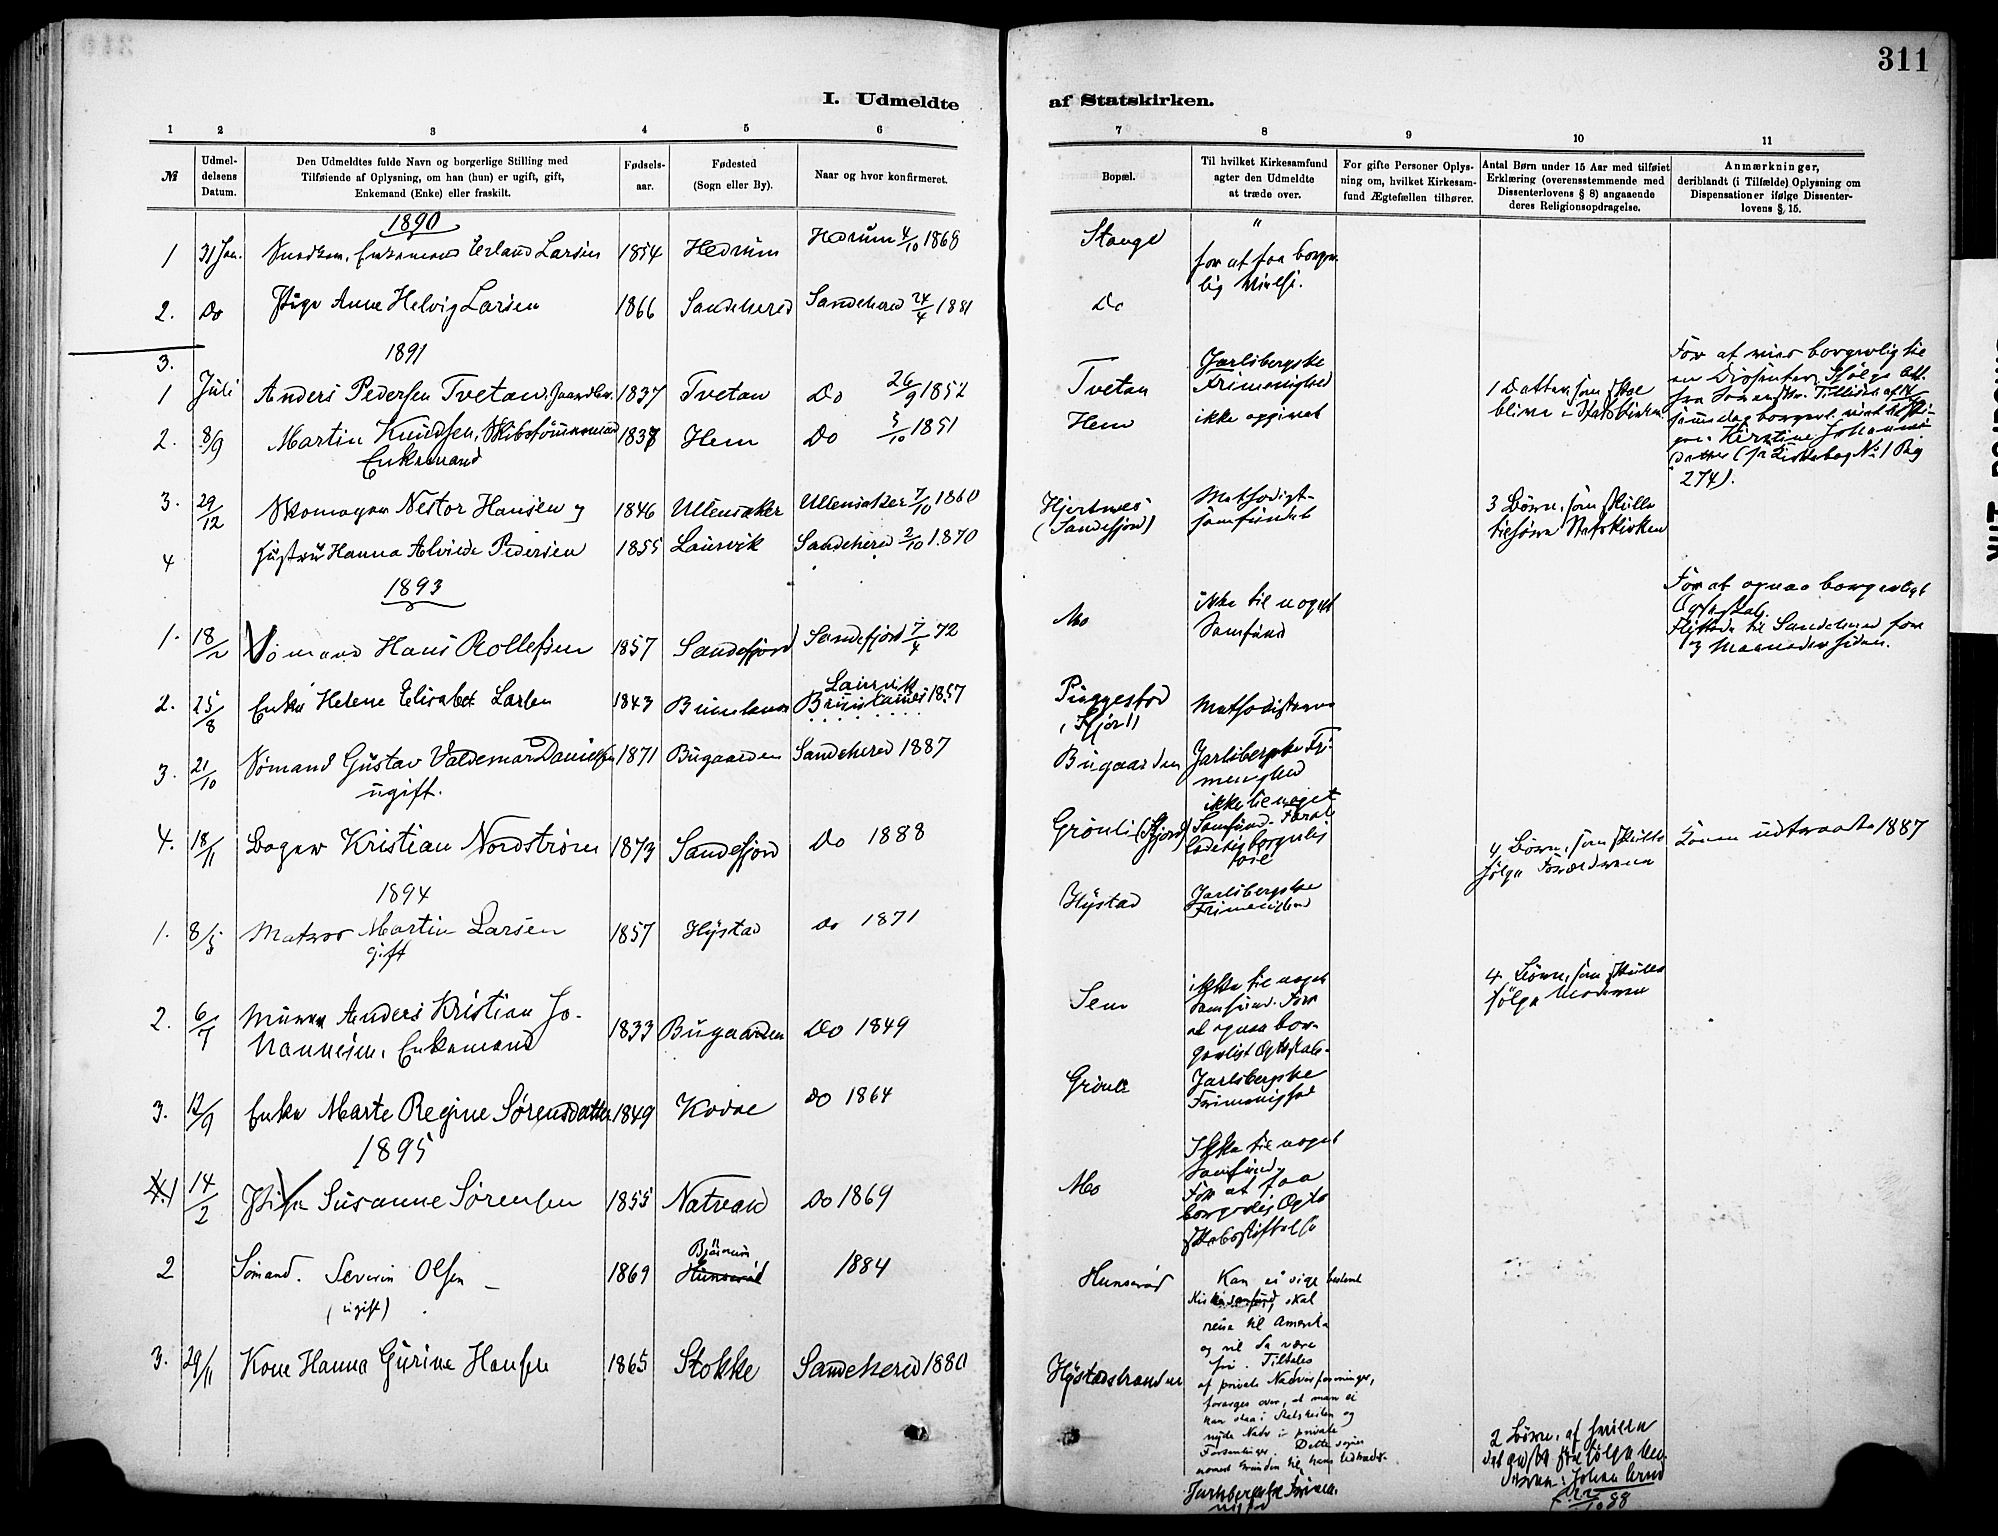 311
I. Udmeldte
af Statskirken.
1 2 3 4 5 6
7 8 9 10 11
№
Udmel-
delsens
Datum.
Den Udmeldtes fulde Navn og borgerlige Stilling med
Tilføiende af Oplysning, om han (hun) er ugift, gift,
Enkemand (Enke) eller fraskilt.
Fødsels-
aar.
Fødested
(Sogn eller By).
Naar og hvor konfirmeret.
Bopæl.
Til hvilket Kirkesamfund
agter den Udmeldte
at træde over.
For gifte Personer Oplys-
ning om, hvilket Kirkesam-
fund Ægtefællen tilhører.
Antal Børn under 15 Aar med tilføiet
Erklæring (overensstemmende med
Dissenterlovens § 8) angaaende
deres Religionsopdragelse.
Anmærkninger,
deriblandt (i Tilfælde) Oplysning om
Dispensationer ifølge Dissenter-
lovens §. 15.
1890
1 31 Jan. Enkemand Erland Larsen 1854 Hedrum Hedrum 4/10 1868
"
for at faa borger-
lig Vielse.
2. Do Pige Anne Helvig Larsen 1866 Sandeherred Sandeherred 24/4 1881 Do
1891
3.
1 Juli Anders Pedersen Tvetan, 1837 Tvetan Do 26/9 1852 Tvetan
Jarlsbergske
Frimenighed
1 Datter, som skal
blive i Statskirken
For at vies borgerlig til
en Dissenter
Kirstine Johannes-
datter
274).
2. 8/9 Martin Knudsen, Skibstømmermand 1837 Hem Do 5/10 1851 Hem ikke opgivet
Enkemand
3. 29/12 Skomager Nestor Hansen og 1846 Ullensaker Ullensaker 7/10 1860
Hjertnes
(Sandefjord)
Methodist-
samfundet
3 Børn, som skulle
tilhøre Statskirken
4 Hustru Hanna Alvide Pedersen 1855 Laurvik Sandeherred 2/10 1870
1893
1. 18/2 Sømand Hans Rollefsen 1857 Sandefjord Sandefjord 7/4 72 Mo
ikke til noget
Samfund
For at opnaa borgerligt
Ægteskab.
Flyttede til Sandeherred for
3 Maaneder siden.
2. 25/8 Enke Helene Elisabet Larsen 1843 Brunlanes
Laurvik
Brunlanes 1857
Methodisterne
3. 21/10 Sømand Gustav Valdemar Danielsen 1871 Bugaarden Sandeherred 1887 Bugaarden
ugift.
Jarlsbergske Fri-
menighed
4. 18/11 Bager Kristian Nordstrøm 1873 Sandefjord Do 1888 Grönli (Sfjord)
ikke til noget
Samfund.
4 Børn, som skulle
følge Forældrene
Konen udtraadte 1887
1894
1. 8/5 Matros Martin Larsen 1857 Hystad Do 1871 Hystad
gift
Jarlsbergske
Frimenighed
2. 6/7 Murer Anders Kristian Jo-
hannesen, Enkemand 1833 Bugaarden Do 1849 Sem
ikke til noget
Samfund. For
at opnaa bor-
gerligt Ægteskab.
4 Børn, som skulle
følge Moderen
3. 12/9 Enke Marte Regine Sørensdatter 1849 Kodal Do 1864 Grönli
Jarlsbergske
Frimenighed
1895
1 14/2 Pige Susanne Sørensen 1855 Natvad Do 1869 Mo
Ikke til noget
Samfund,
For at faa
borgerlig Ægte-
skabsstiftelse
2 Sømand. Severin Olsen 1869 Bjørnum Hunserød 1884 Hunserød
(ugift)
Kan ei sige bestemt
Kirkesamfund, skal
reise til Amerika
og vil da være
fri. Tiltales
af private Nadverforeninger,
forarges over, at man ei
kan staa i Statskirken og
nyde Nadv. i private
Forsamlinger. Dette synes
3. 29/11 Kone Hanna Gurine Hansen 1865 Stokke Sandeherred 1880 Hystadstranden
Jarlsbergske Frime-
nighed
2 Børn, af hvilke
det ældste skal følge
Johan
22/10 88